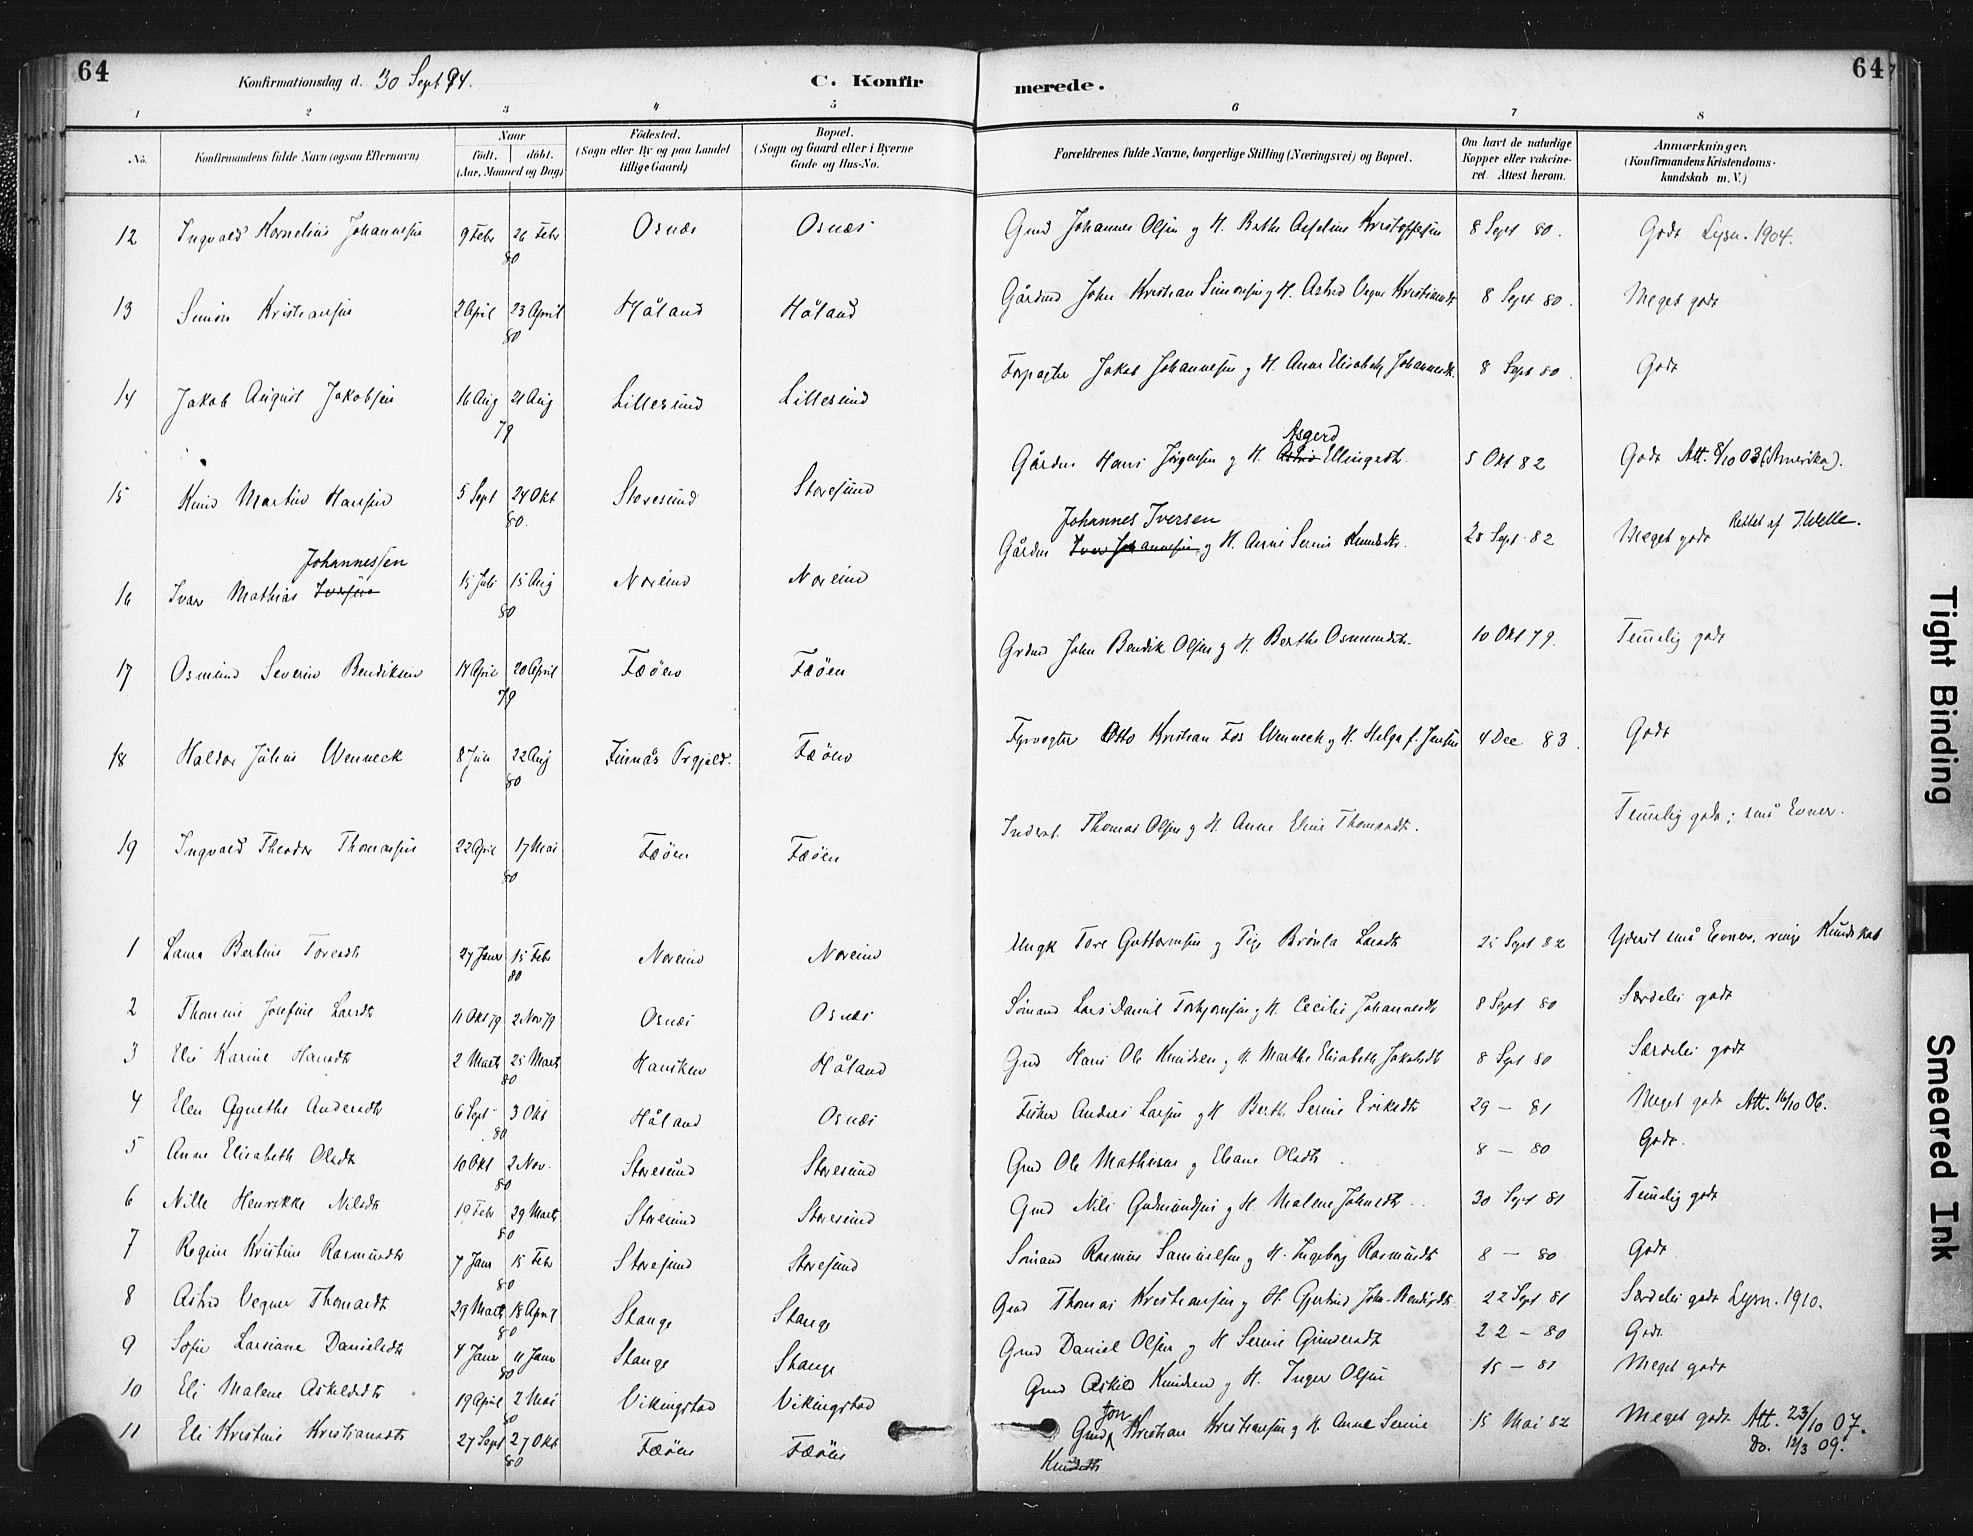 64
Konfirmationsdag d. 30 Sept 94.
C. Konfirmerede.
64
1 2 3 4 5 6 7 8
No. Konfirmandens fulde Navn (ogsaa Efternavn) Naar født. døbt. (Aar, Maaned og Dag) Fødested. (Sogn eller By og paa Landet tillige Gaard) Bopæl. (Sogn og Gaard eller i Byerne Gade og Hus-No. Forældrenes fulde Navne, borgerlige Stilling (Næringsvei) og Bopæl. Om havt de naturlige Kopper eller vakcineret. Attest herom. Anmærkninger. (Konfirmandens Kristendomskundskab m. V.)
12 Ingvald Kornelius Johannesen 9 Febr 26 Febr 80 Osnæs Osnæs Gmd Johannes Olsen og H. Berthe Kristoffersen 8 Sept 80. Godt Lysn. 1904.
13 Simon Kristiansen 2 April 23 April 80 Håland Håland Gårdmd John Kristian Simonsen og H. Astrid Vegne Kristiansdt 8 Sept 80. Meget godt
14 Jakob August Jakobsen 16 Aug 21 Aug 79 Lillesund Lillesund Forpagter Jakob Johannesen og H. Anne Elisabeth Johannesdt. 8 Sept 80. Godt
15 Knud Martin Hansen 5 Sept 24 Okt 80. Storesund Storesund Gårdm Hans Jørgensen og H. Astrid Asgerd Ellingsdt. 5 Okt 82 Godt Att. 8/10 03 (Amerika).
16 Ivar Mathias Iversen Johannessen 15 Juli 15 Aug 80 Noreim Noreim Gårdm Iver Johannesen Johannes Iversen og H. Anne Serine Knudsdt. 28 Sept 82 Meget godt Rettet af J. Welle.
17 Osmund Severin Bendiksen 14 April 20 April 79 Fæøen Fæøen Grdmd John Bendik Olsen og H. Berthe Osmundsdt. 10 Okt 79. Temelig godt
18 Haldor Julius Wenneck 8 Juni 22 Aug 80 Finnås Prgjeld. Fæøen Fyrvogter Otto Kristian Fos Wenneck og H. Helga f. Jensen 4 Dec 83. Godt
19 Ingvald Theodor Thomassen 22 April 17 Mai 80 Fæøen Fæøen Inderst. Thomas Olsen og H. Anne Eline Thomasdt. Temelig godt; små Evner.
1 Laura Bertine Toresdt 27 Janr 15 Febr 80 Noreim Noreim Ungk Tore Guttormsen og Pige Brønla Larsdt 25 Sept 82 Yderst små Evner, ringe Kundskab
2 Thomine Josefine Larsdt 11 Okt 79 2 Nov 79 Osnæs Osnæs Sømand Lars Daniel Torbjørnsen og H. Cecilie Johannesdt 8 Sept 80 Særdeles godt
3 Elie Karine Hansdt 2 Marts 25 Marts 80 Hansken Håland Gmd Hans Ole Knudsen og H Marthe Elisabeth Jakobsdt 8 Sept 80 Særdeles godt
4 Elen Agnethe Andersdt 6 Sept 3 Okt 80 Håland Osnæs Fisker Andres Larsen og H Berthe Serine Eriksdt 29 — 81 Meget godt Att. 16/10 06.
5 Anne Elisabeth Olsdt 10 Okt 2 Nov. 80 Storesund Storesund Gmd Ole Mathisen og Eleane Olsdt. 8 — 80 Godt.
6 Nille Henrikke Nilsdt 19 Febr 29 Marts 80 Storesund Storesund Gmd Nils Gudmundsen og H Malene Johnsdt.. 30 Sept 81 Temelig godt
7 Regine Kristine Rasmusdt 7 Janr 15 Febr 80 Storesund Storesund Sømand Rasmus Samuelsen og H. Ingeborg Rasmusdt 8 — 80 Godt
8 Astrid Vegner Thomasdt 29 Marts 18 April 80 Stange Stange Gmd Thomas Kristiansen og H. Gjertrud John-Bendiksdt. 22 Sept 81 Særdeles godt Lysn. 1910.
9 Sofie Larsiane Danielsdt 4 Janr 11 Janr 80 Stange Stange Gmd Daniel Olsen og H Serine Gundersdt 22 — 80 Godt
10 Eli Malene Askildsdt 19 April 2 Mai 80 Vikingstad Vikingstad Gmd Askild Knudsen og H. Inger Olsen 15 — 81 Meget godt
11 Eli Kristine Kristiansdt 27 Sept 27 Okt 80 Fæøen Fæøen Gmd Jon Kristian Kristiansen og H. Anne Serine Knudsdt 15 Mai 82 Meget godt Att. 23/10 07. do. 12/3 09.
Tight Binding
Smeared Ink